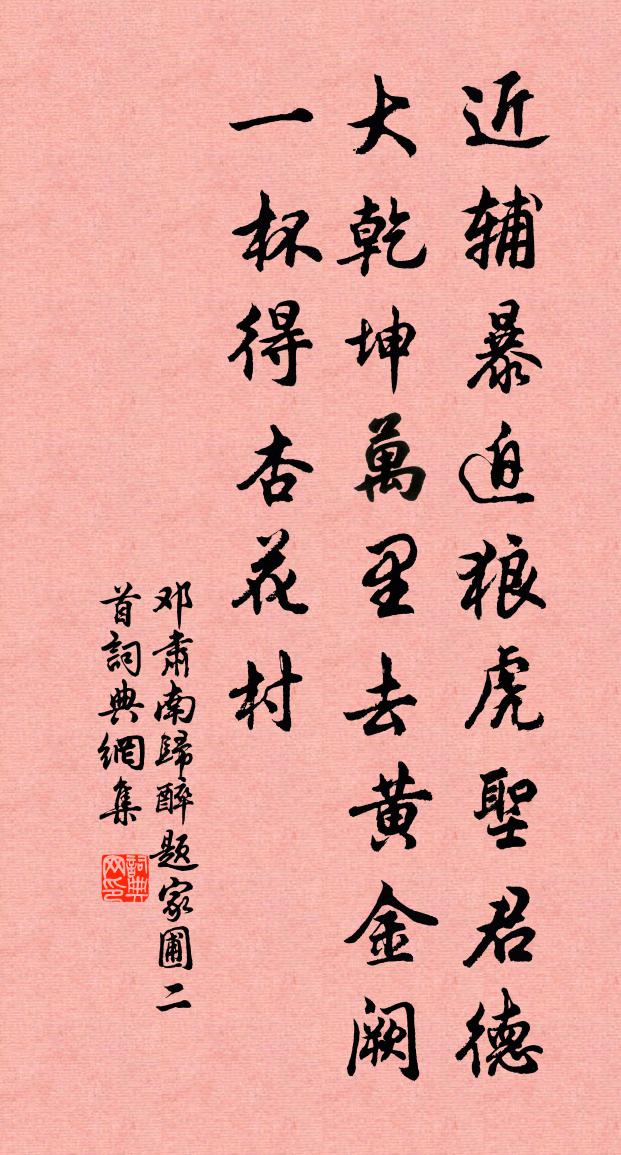 近辅暴迫狼虎聖君德
大乾坤萬里去黄金阙
一杯得杏花村
邓肃南歸醉题家圃二
首詞典網集
詞典
网印